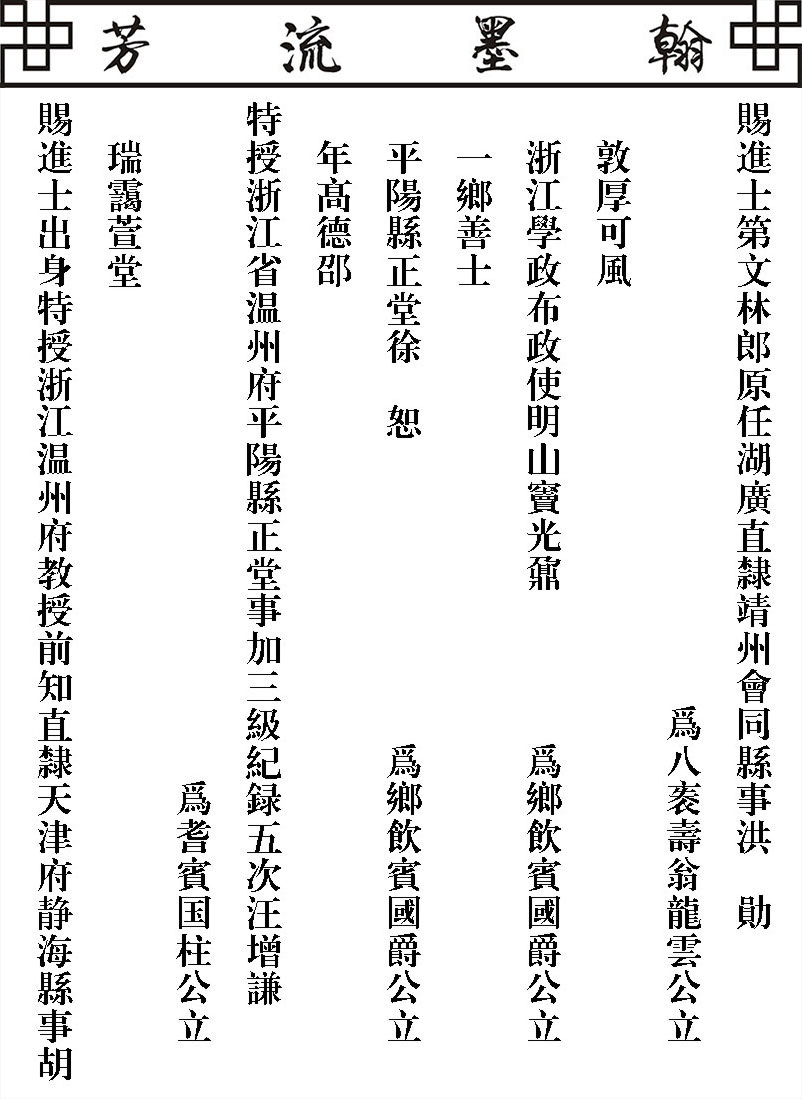 翰墨流芳
賜進士第文林郎原任湖廣直隸靖州會同縣事洪　勛
爲八袠壽翁龍雲公立
敦厚可風
浙江學政布政使明山竇光鼐
爲鄉飲賓國爵公立
一鄉善士
平陽縣正堂徐　恕
爲鄉飲賓國爵公立
年高德邵
特授浙江省温州府平陽縣正堂事加三級紀録五次汪增謙
爲耆賓国柱公立
瑞靄萱堂
賜進士出身特授浙江温州府教授前知直隸天津府静海縣事胡